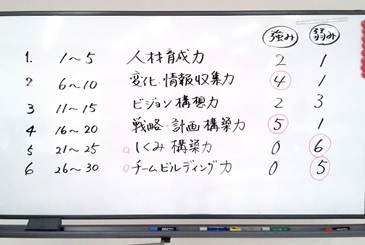 強み 弱み
1. 1～5 人材育成力 2 1
2 6～10 変化・情報収集力 4 1
3 11～15 ビジョン構想力 2 3
4 16～20 戦略・計画構築力 5 1
5 21～25 しくみ構築力 0 6
6 26～30 チームビルディング力 0 5